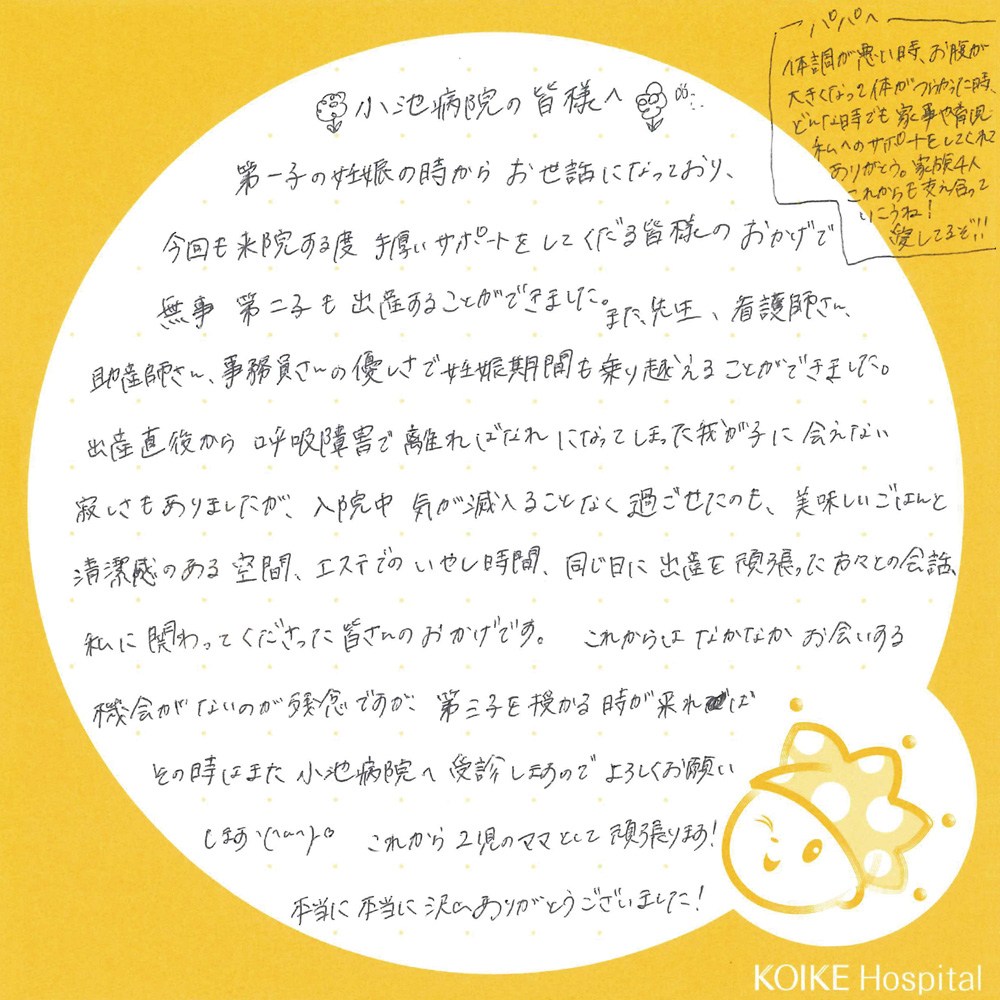 小池病院の皆様へ
第一子の妊娠の時から お世話になっており、
今回も来院する度 手厚いサポートをしてくださる皆様の おかげで
無事 第二子も 出産することができました。また、先生、看護師さん、
助産師さん、事務員さんの優しさで妊娠期間も乗り越えることができました。
出産直後から 呼吸障害で離ればなれになってしまった我が子に 会えない
寂しさもありましたが、入院中 気が滅入ることなく過ごせたのも、美味しいごはんと
清潔感のある空間、エステでのいやし時間、同じ日に出産を頑張った方々との会話、
私に関わってくださった皆さんのおかげです。 これからは なかなか お会いする
機会がないのが残念ですが、第三子を授かる時が来れば
その時はまた 小池病院へ 受診しますので よろしくお願い
します\(^-^)/。 これから2児のママとして頑張ります!
本当に本当に沢山ありがとうございました!
パパへ
体調が悪い時、お腹が
大きくなって体がつらかった時、
どんな時でも家事や育児
私へのサポートをしてくれて
ありがとう。家族4人
これからも支え合って
いこうね!
愛してるぞ!!
KOIKE Hospital